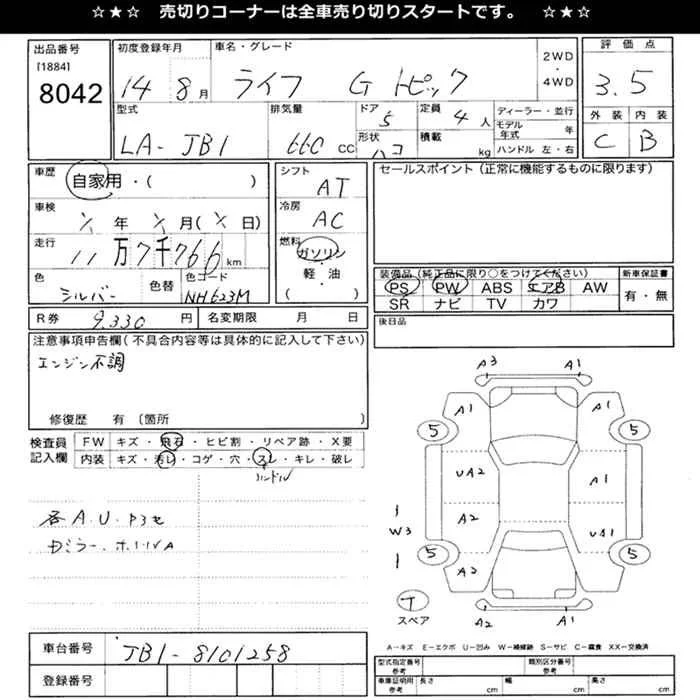 ☆★☆ 売切りコーナーは全車売り切りスタートです。 ☆★☆
出品番号
[1884]
8042
初度登録年月
14 8月
車名・グレード
ライフ G トピック
2WD
・
4WD
評価点
3.5
外装 内装
C B
型式
LA-JB1
排気量
660 CC
ドア
5
形状
ハコ
定員
4 人
積載
kg
ディーラー・並行
モデル年式 年
ハンドル 左・右
車歴
自家用・( )
車検
年 月( 日)
走行
11万7千766km
色
シルバー
色替
色コード
NH623M
シフト
AT
冷房
AC
燃料
ガソリン
・
軽油
( )
セールスポイント(正常に機能するものに限ります)
装備品(純正品に限り○をつけてください)
PS PW ABS エアB AW
SR ナビ TV カワ
新車保証書
有・無
R券 9,330 円
名変期限 月 日
後日品
注意事項申告欄(不具合内容等は具体的に記入して下さい)
エンジン不調
修復歴 有(箇所
検査員
記入欄
FW キズ・飛石・ヒビ割・リペア跡・X要
内装 キズ・汚レ・コゲ・穴・スレ・キレ・破レ
ハンドル
各A.U.
A3 A1
A1 A1
5 5
UA2 A1
A2 UA1
W3
5 5
A2 A1
T
スペア
A2 A1
A-キズ E-エクボ U-凹み W-補修跡 S-サビ C-腐食 XX-交換済
車台番号 JB1-8101258
登録番号
型式指定番号
参考
類別区分番号
参考
車庫証明用
参考
長さ cm 幅 cm 高さ cm